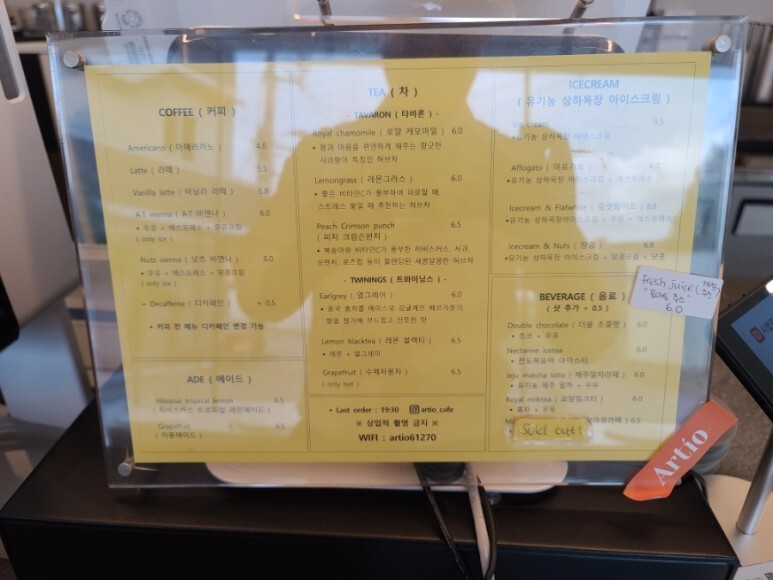 COFFEE ( 커피 )
Americano ( 아메리카노 ) 4.8
Latte ( 라떼 ) 5.5
Vanilla latte ( 바닐라 라떼 ) 5.8
A.T vienna ( A.T 비엔나 ) 6.0
• 우유 + 에스프레소 + 우유크림
( only ice )
Nuts vienna ( 넛츠 비엔나 ) 6.0
• 우유 + 에스프레소 + 땅콩크림
( only ice )
• Decaffeine ( 디카페인 ) + 0.5
• 커피 전 메뉴 디카페인 변경 가능
ADE ( 에이드 )
Hibiscus tropical lemon 6.5
( 히비스커스 트로피컬 레몬에이드 )
Grapefruit 6.5
( 자몽에이드 )
TEA ( 차 )
- TAVARON ( 타바론 ) -
Royal chamomile ( 로얄 캐모마일 ) 6.0
• 몸과 마음을 편안하게 해주는 향긋한
사과향이 특징인 허브차
Lemongrass ( 레몬그라스 ) 6.0
• 좋은 비타민C가 풍부하여 피로할 때,
스트레스 쌓일 때 추천하는 허브차
Peach Crimson punch 6.5
( 피치 크림슨펀치 )
• 복숭아와 비타민C가 풍부한 히비스커스, 사과,
오렌지, 로즈힙 등이 블렌딩된 새콤달콤한 허브차
- TWININGS ( 트와이닝스 ) -
Earlgrey ( 얼그레이 ) 6.0
• 중국 홍차를 베이스로 싱글케인 베르가못의
향을 첨가해 부드럽고 산뜻한 맛
Lemon blacktea ( 레몬 블랙티 ) 6.5
• 레몬 + 얼그레이
Grapefruit ( 수제자몽차 ) 6.5
( only hot )
• Last order : 19:30 artio_cafe
※ 상업적 촬영 금지 ※
WIFI : artio61270
ICECREAM
( 유기농 상하목장 아이스크림 )
Ice Cream 5.5
•유기농 상하목장 아이스크림
Affogato ( 아포가토 ) 6.0
•유기농 상하목장 아이스크림 + 에스프레소
Icecream & Flatwhite ( 플랫화이트 ) 6.8
•유기농 상하목장아이스크림 + 우유 + 에스프레소
Icecream & Nuts ( 땅콩 ) 6.8
•유기농 상하목장 아이스크림 + 땅콩크림 + 땅콩
BEVERAGE ( 음료 )
( 샷 추가 + 0.5 )
Double chocolate ( 더블 초콜렛 ) 6.0
• 초코 + 우유
Nectarine icetea 6.0
• 천도복숭아 아이스티
Jeju matcha latte ( 제주말차라떼 ) 6.0
• 유기농 제주 말차 + 우유
Royal milktea ( 로얄밀크티 ) 6.0
• 홍차 + 우유
6.5
Sold out!
Fresh Juice
6.0
Artío